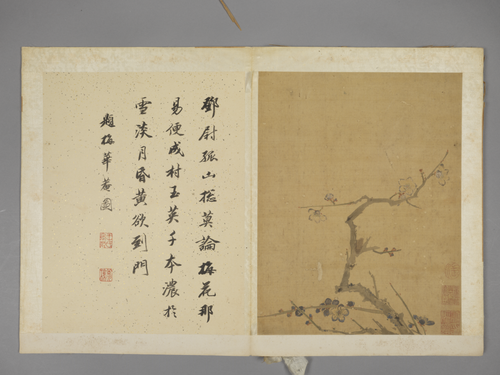 鄧尉孤山捴莫論梅花那
易便成村玉英千本濃於
雪淡月昏黃欲到門
題梅華菴圖